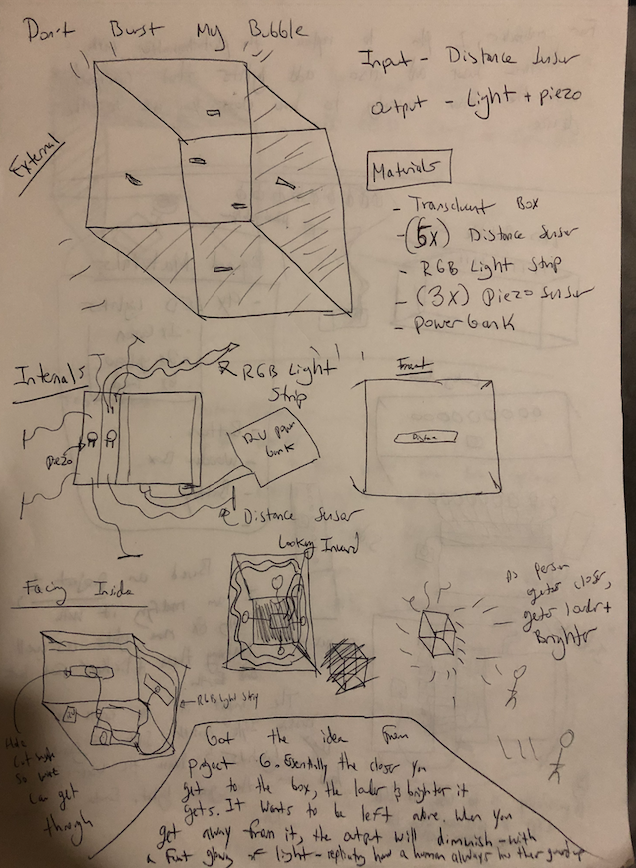 Don't Burst My Bubble
External
Input - Distance Sensor
Output - Light + piezo
Materials
- Translucent Box
- (5x) Distance Sensor
- RGB Light Strip
- (3x) Piezo Sensor
- Powerbank
Internals
RGB Light
Strip
piezo
power
bank
Distance Sensor
Front
Distance
Looking Inward
Facing Inside
RGB Light Strip
Hole
Cut
So wire
can get
through
As person
gets closer,
gets louder +
Brighter
Got the idea from
project 6. Essentially the closer you
get to the box, the louder & brighter it
gets. It wants to be left alone. When you
get away from it, the output will diminish - with
a faint glowing of light - replicating how a human always has their guard up